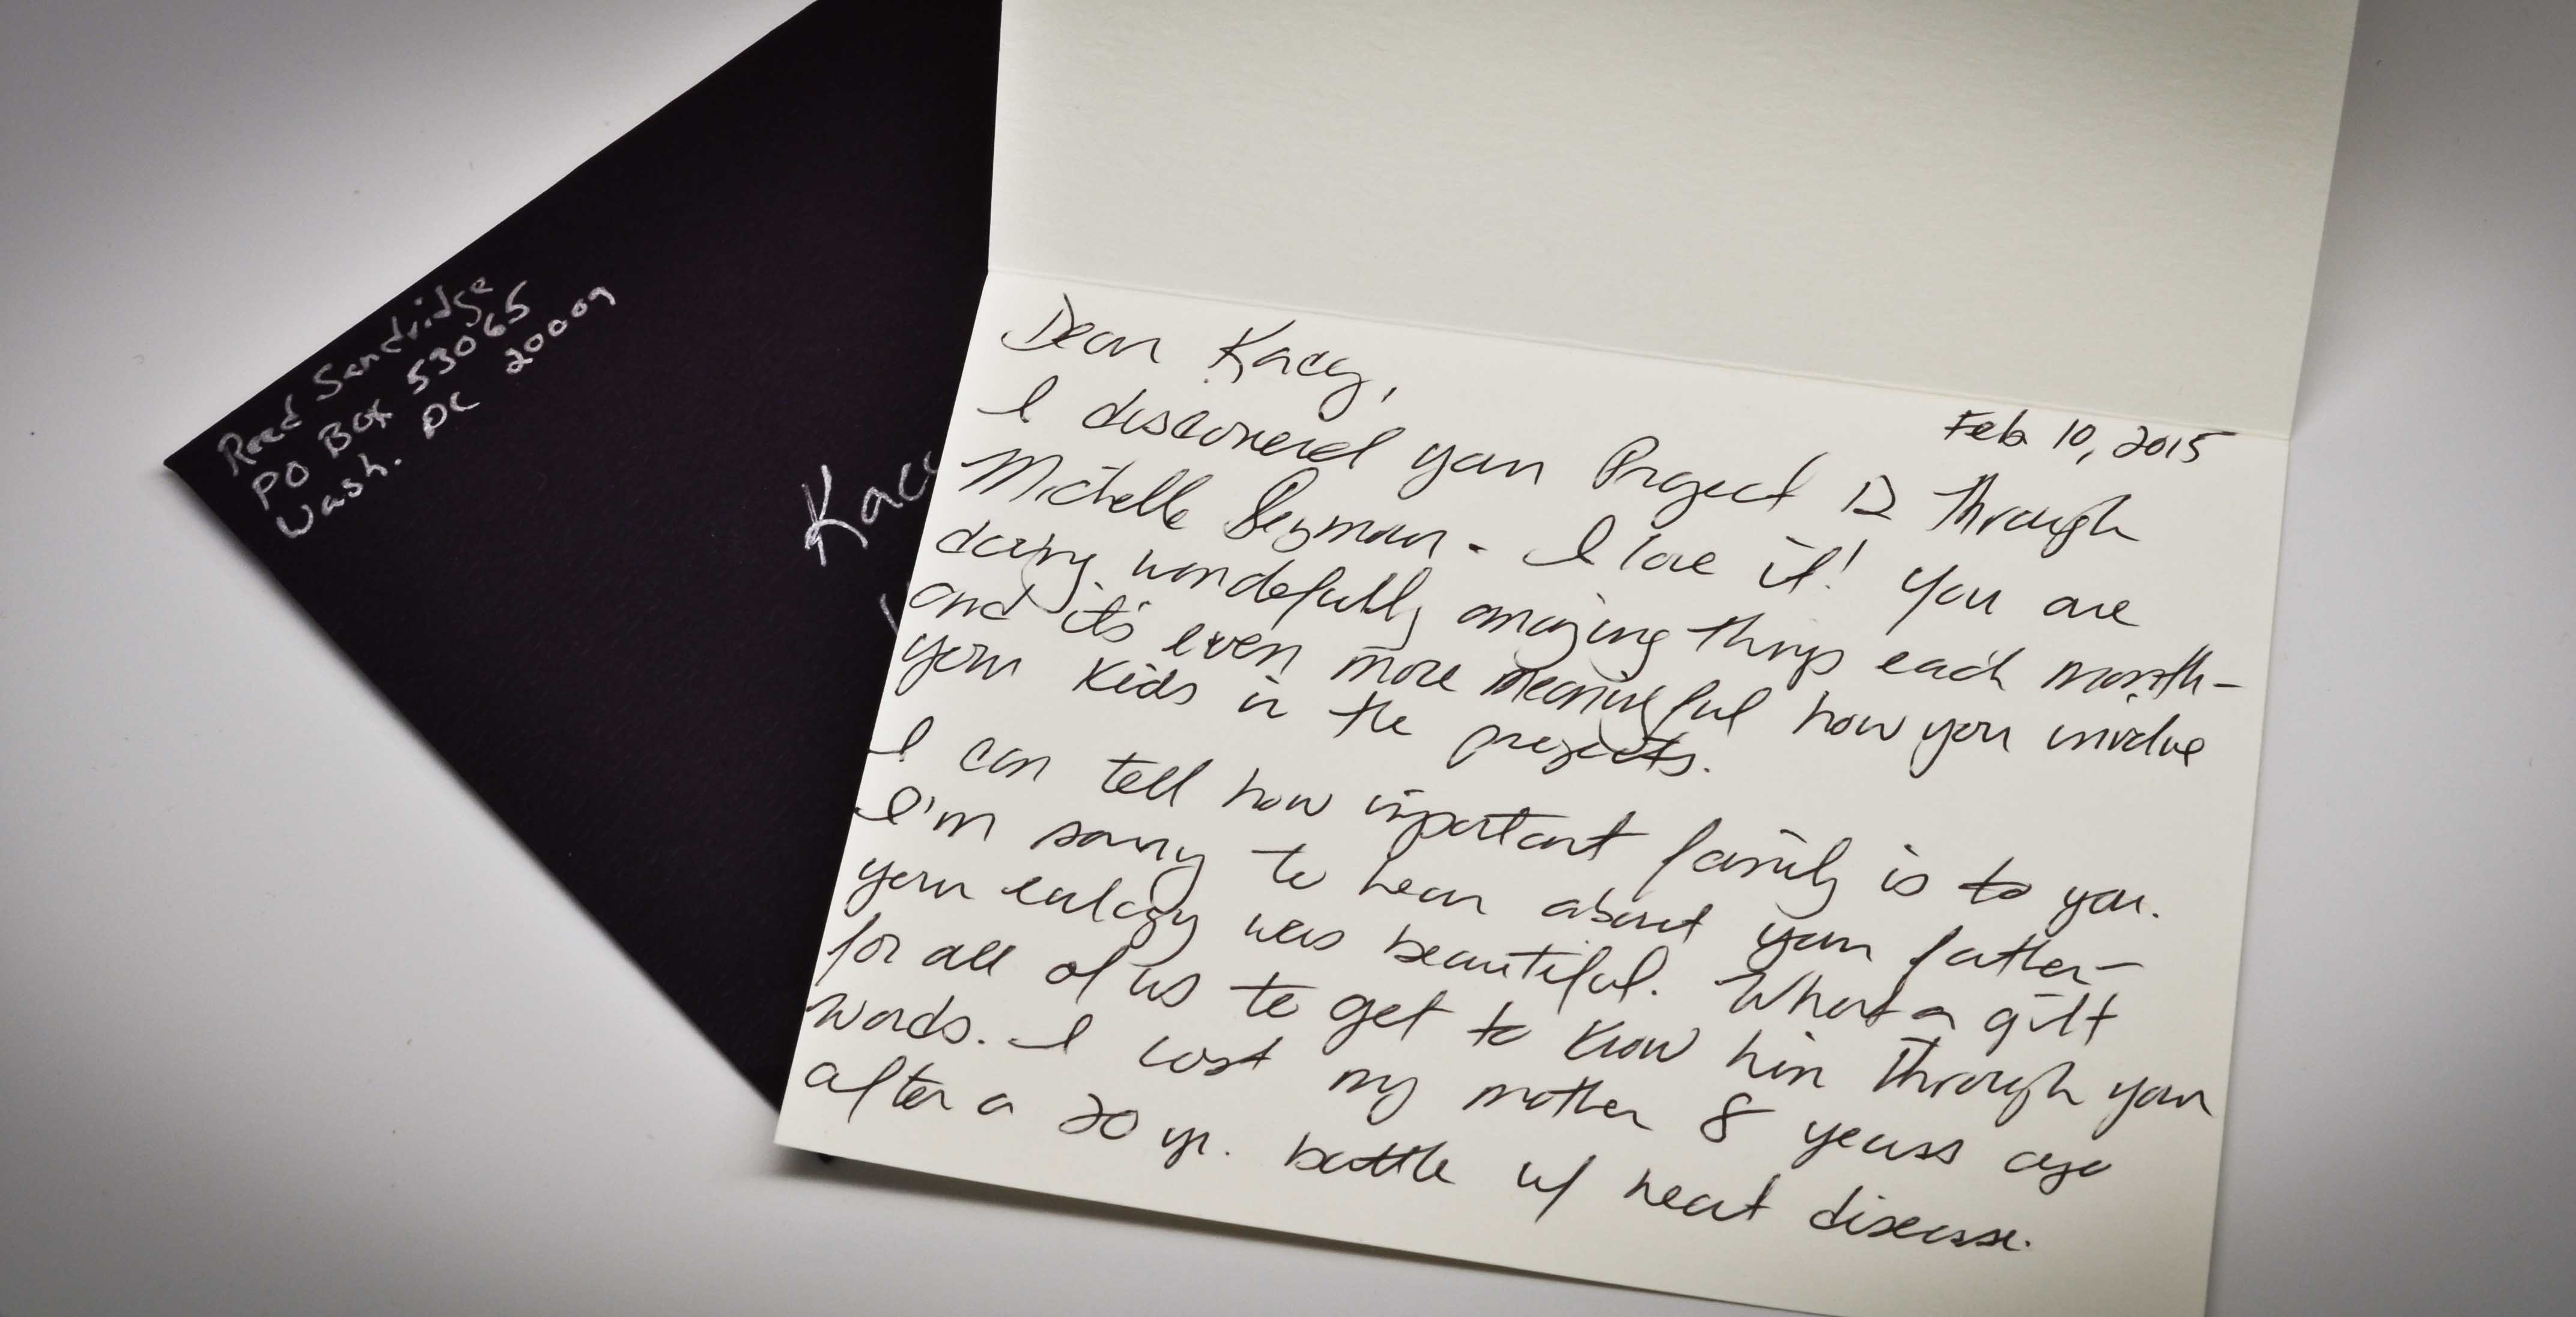 Reed Sandridge
PO Box 53065
Wash. DC 20009
Kacy
Feb 10, 2015
Dear Kacy,
I discovered your Project 12 through
Michelle Seymour - I love it! You are
doing wonderfully amazing things each month-
and it's even more meaningful how you involve
your kids in the projects.
I can tell how important family is to you.
I'm sorry to hear about your father-
your eulogy was beautiful. What a gift
for all of us to get to know him through your
words. I lost my mother 8 years ago
after a 20 yr. battle w/ heart disease.